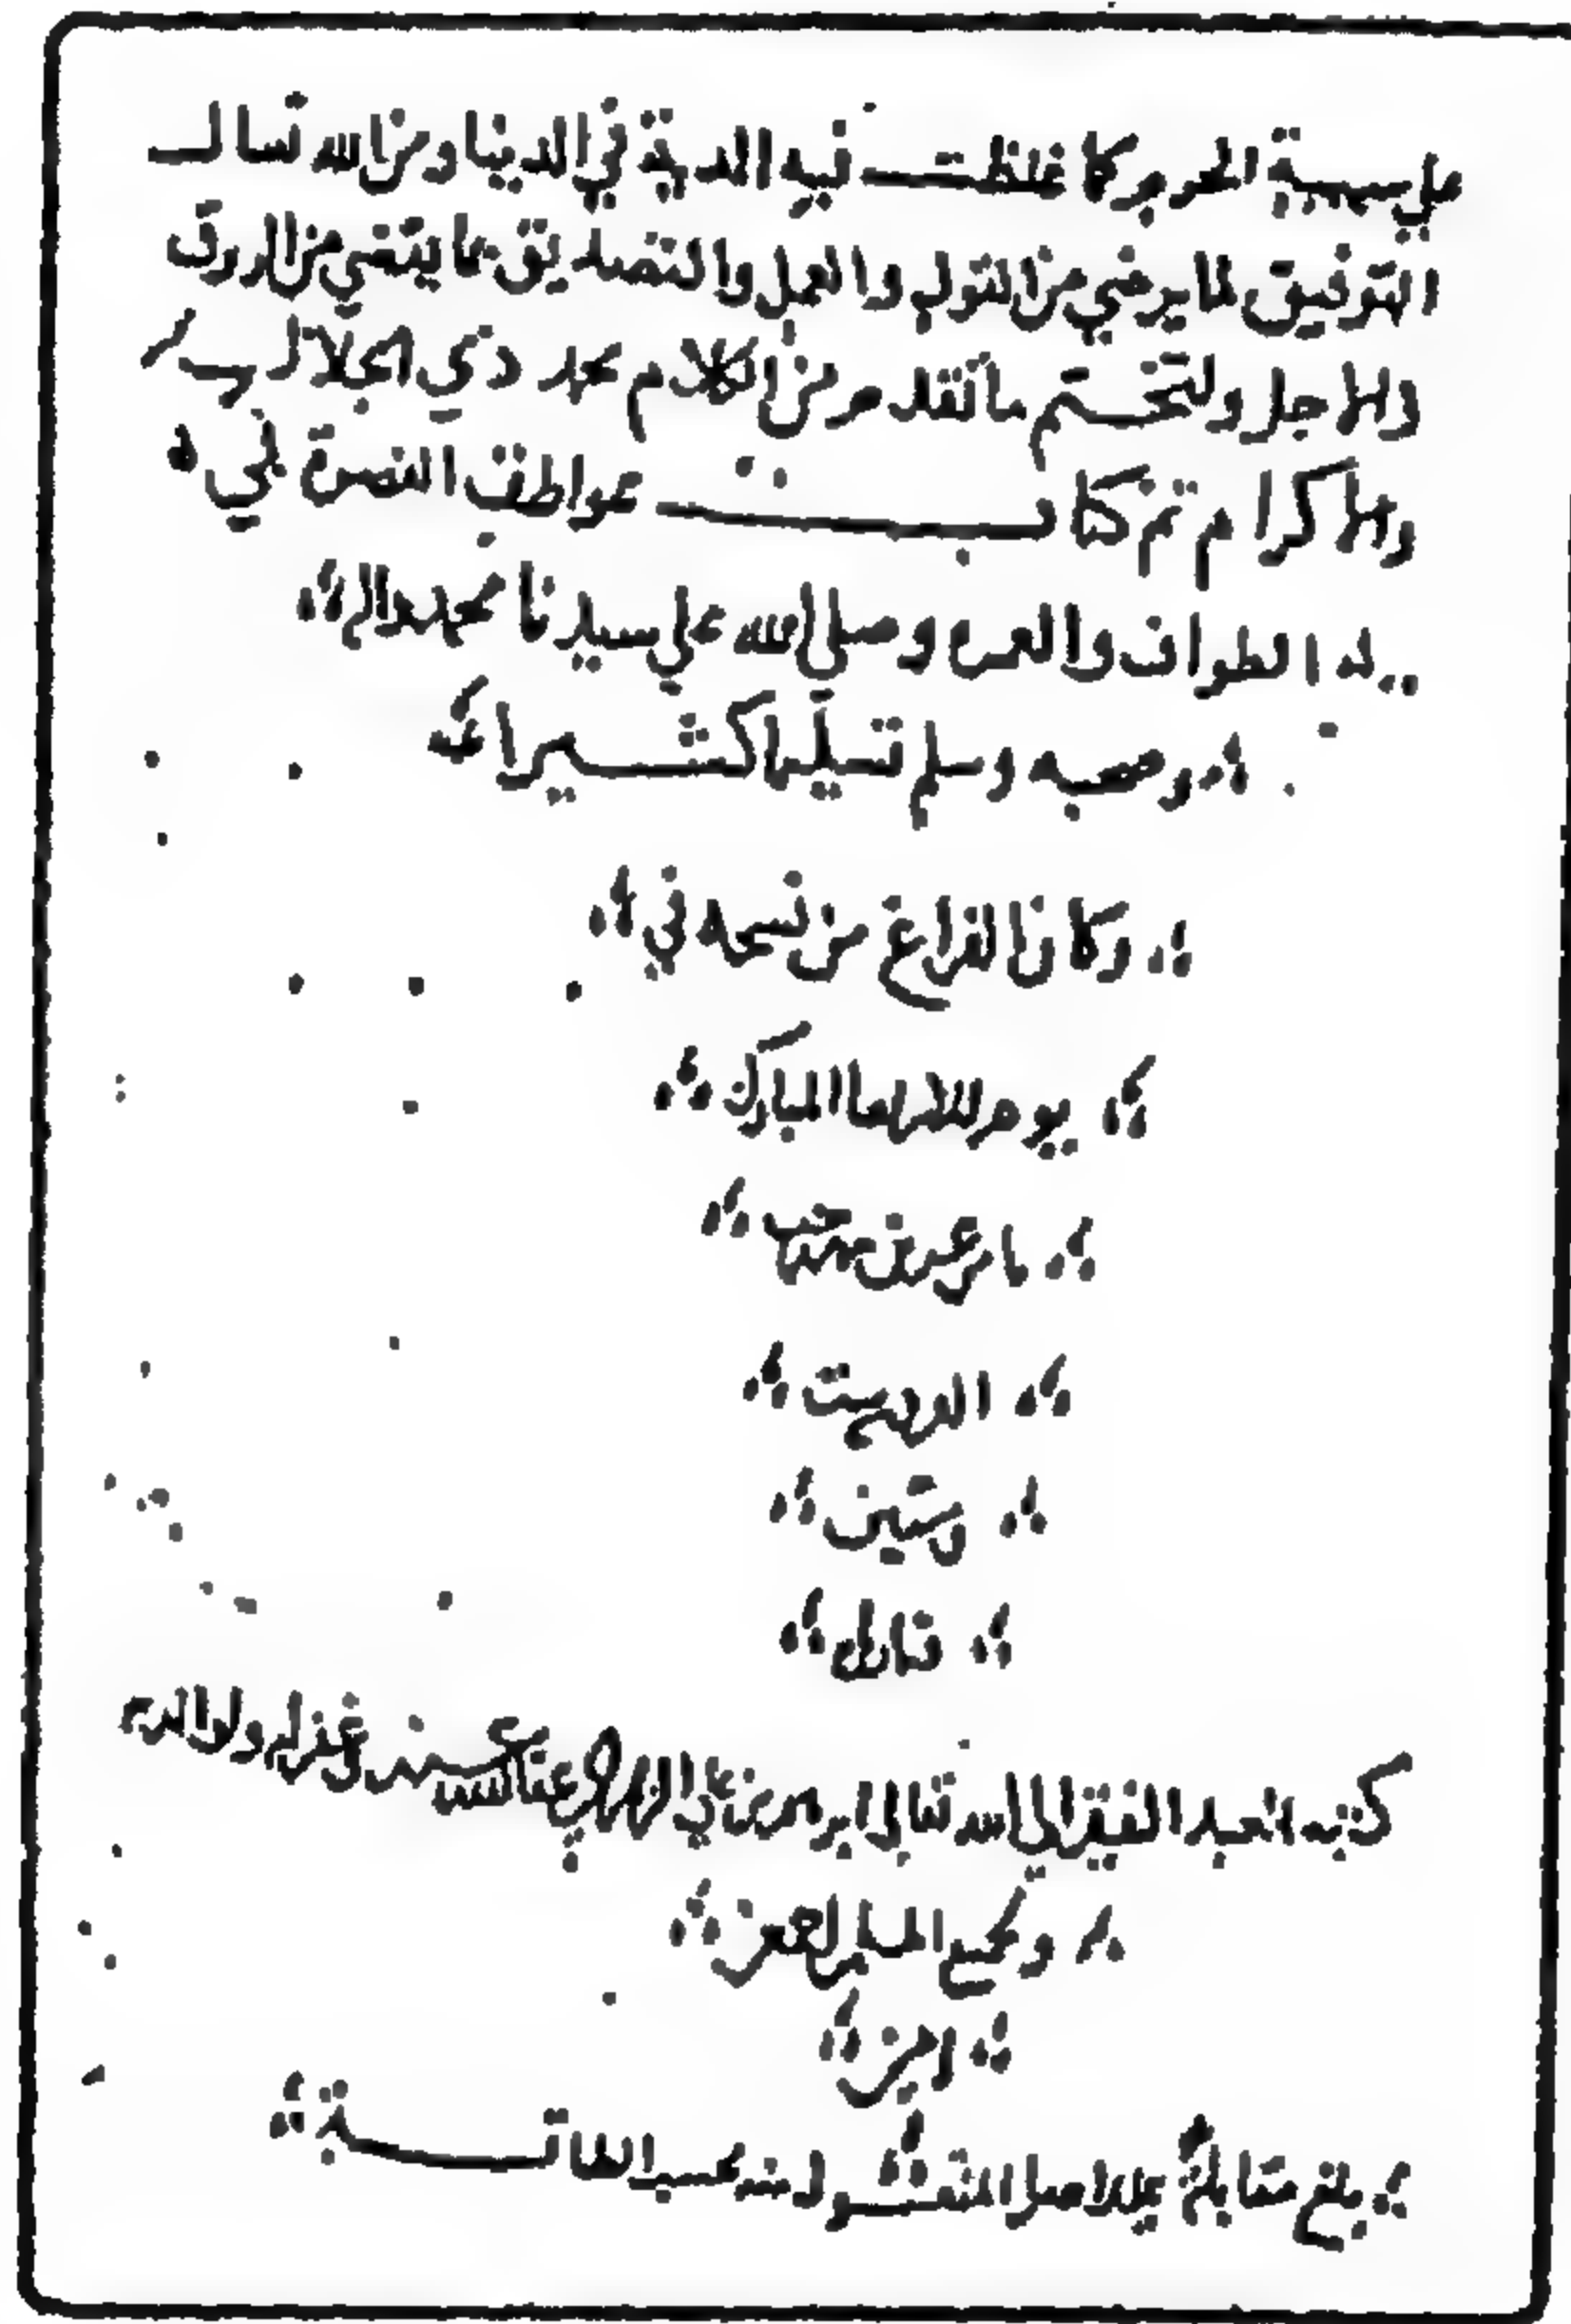 علي سيئة الحرم كما غلظت فيه الدية في الدنيا ومن الله نسال
التوفيق لما يرضي من القول والعمل والتصديق بما يقتضي من الرزق
والاجل ولنختم ما تقدم من الكلام بحمد ذي الجلال
والاكرام تم كتاب عواطف النصرة في
الطواف والعمرة وصلى الله علي سيدنا محمد واله
وصحبه وسلم تسليما كثيرا
وكان الفراغ من نسخه في
يوم المبارك
من
وستين
والف
كتبه العبد الفقير الي الله تعالي عفا الله عنه غفر له ولوالديه
ولجميع المسلمين
امين
بلغ مقابلة علي الاصل المنقول منه بحسب الطاقة